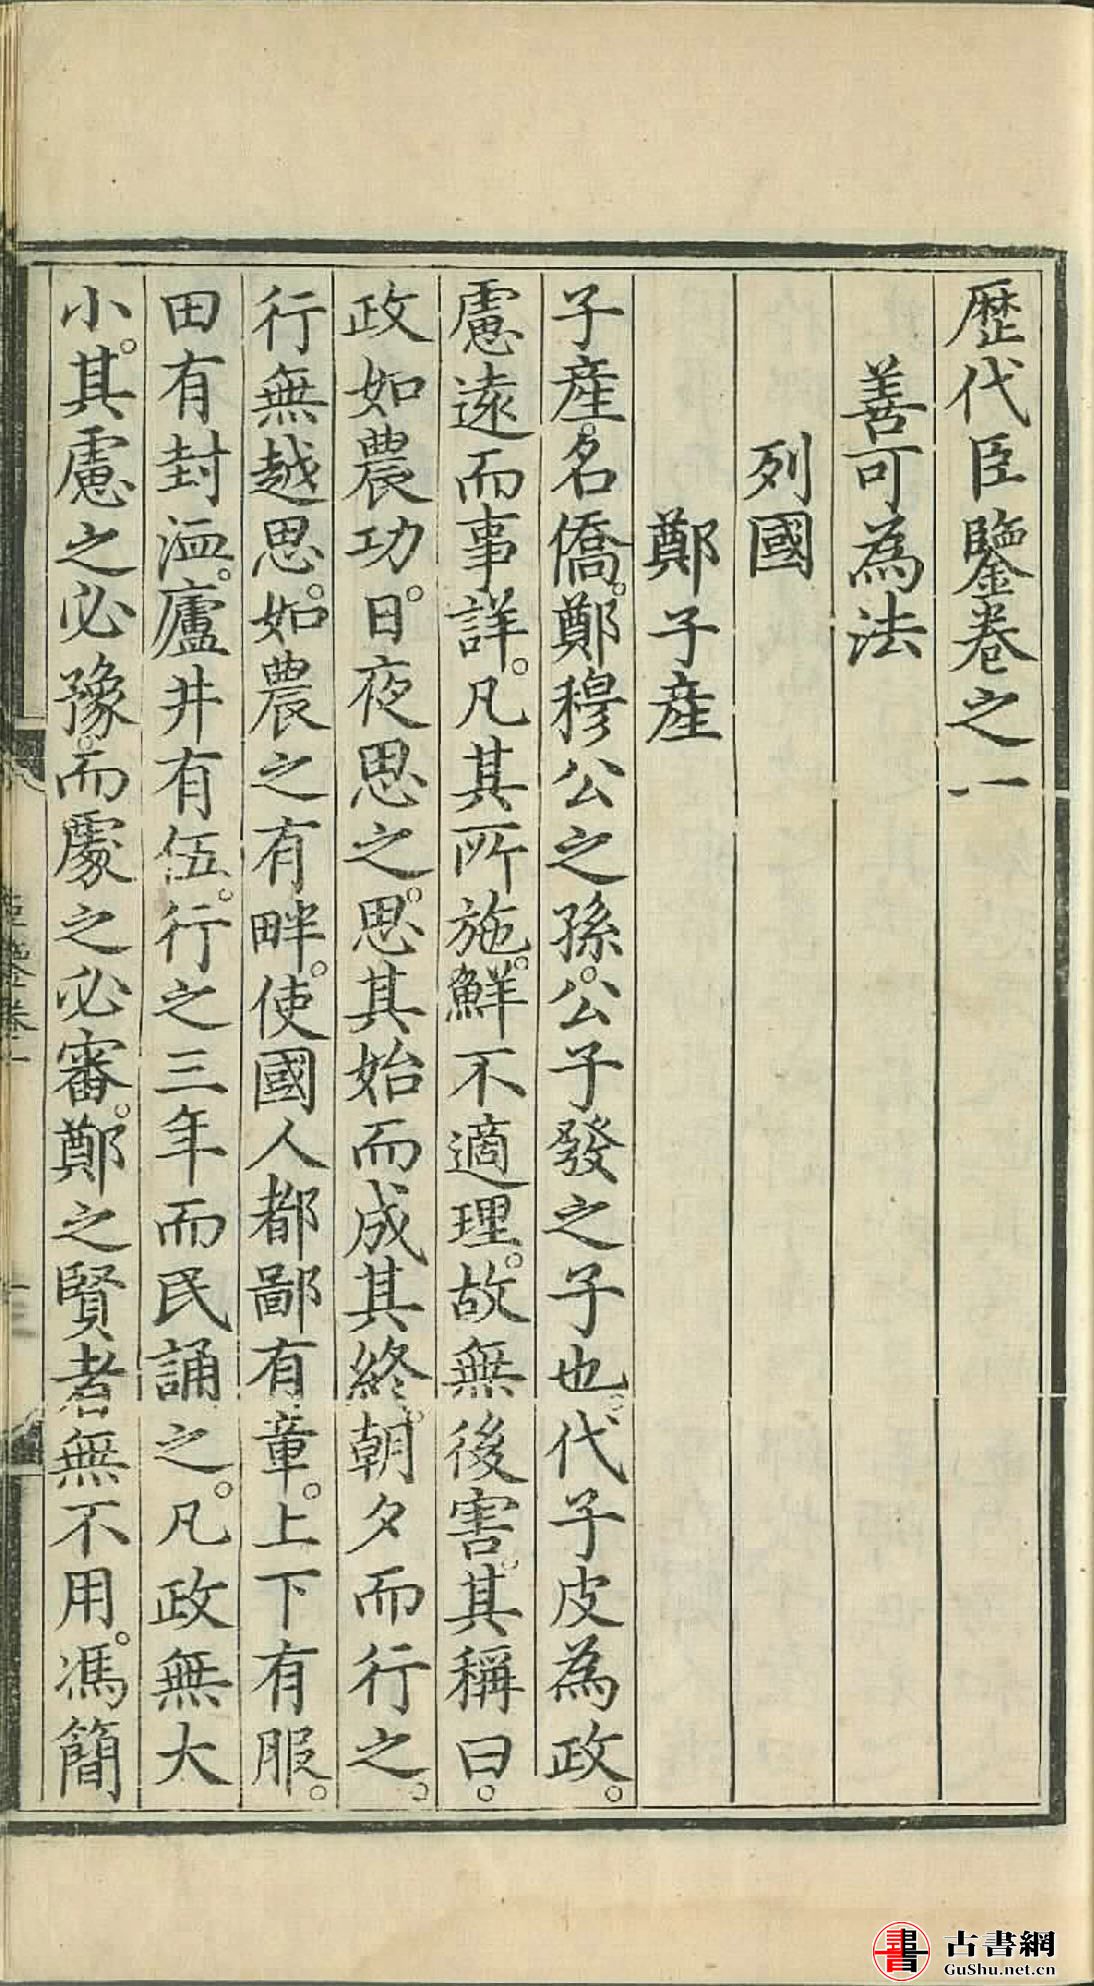 歷代臣鑒卷之一
善可為法
列國
鄭子產
子產。名僑。鄭穆公之孫。公子發之子也。代子皮為政。
慮遠而事詳。凡其所施。鮮不適理。故無後害。其稱曰。
政如農功。日夜思之。思其始而成其終。朝夕而行之。
行無越思。如農之有畔。使國人都鄙有章。上下有服。
田有封洫。廬井有伍。行之三年而民誦之。凡政無大
小。其慮之必豫。而處之必審。鄭之賢者無不用。馮簡
臣鑒卷一
古書網
GuShu.net.cn